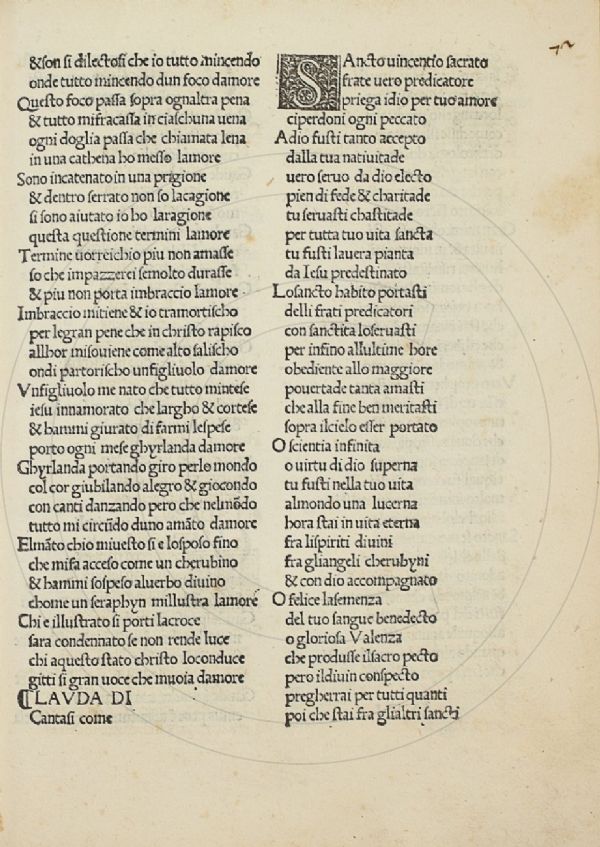 &son si dilectosi che io tutto mincendo
onde tutto mincendo dun foco damore
Questo foco passa sopra ognaltra pena
& tutto mifracassa in ciaschuna uena
ogni doglia passa che chiamata lena
in una cathena ho messo lamore
Sono incatenato in una prigione
& dentro serrato non so lacagione
si sono aiutato io ho laragione
questa questione termini lamore
Termine uorreichio piu non amasse
so che impazzerei semolto durasse
& piu non porta imbraccio lamore
Imbraccio mitiene & io tramortischo
per legran pene che in christo rapisco
allhor misouiene come alto salischo
ondi partorischo unfigliuolo damore
Vnfigliuolo me nato che tutto mintese
iesu innamorato che largho & cortese
& hammi giurato di farmi lespese
porto ogni mese ghyrlanda damore
Ghyrlanda portando giro perlo mondo
col cor giubilando alegro & giocondo
con canti danzando pero che nelmōdo
tutto mi circūdo duno amāto damore
Elmāto chio miuesto si e losposo fino
che misa acceso come un cherubino
& hammi sospeso aluerbo diuino
chome un seraphyn millustra lamore
Chi e illustrato si porti lacroce
sara condennato se non rende luce
chi aquesto stato christo loconduce
gitti si gran uoce che muoia damore
¶LAVDA DI
Cantasi come
SAncto uincentio sacrato
frate uero predicatore
priega idio per tuo amore
ciperdoni ogni peccato
Adio fusti tanto accepto
dalla tua natiuitade
uero seruo da dio electo
pien di fede & charitade
tu seruasti chastitade
per tutta tuo uita sancta
tu fusti lauera pianta
da Iesu predestinato
Losancto habito portasti
delli frati predicatori
con sanctita loseruasti
per infino allultime hore
obediente allo maggiore
pouertade tanta amasti
che alla fine ben meritasti
sopra ilcielo esser portato
O scientia infinita
o uirtu di dio superna
tu fusti nella tuo uita
almondo una lucerna
hora stai in uita eterna
fra lispiriti diuini
fra gliangeli cherubyni
& con dio accompagnato
O felice lasemenza
del tuo sangue benedecto
o gloriosa Valenza
che produsse ilsacro pecto
pero ildiuin conspecto
pregherrai per tutti quanti
poi che stai fra glialtri sancti